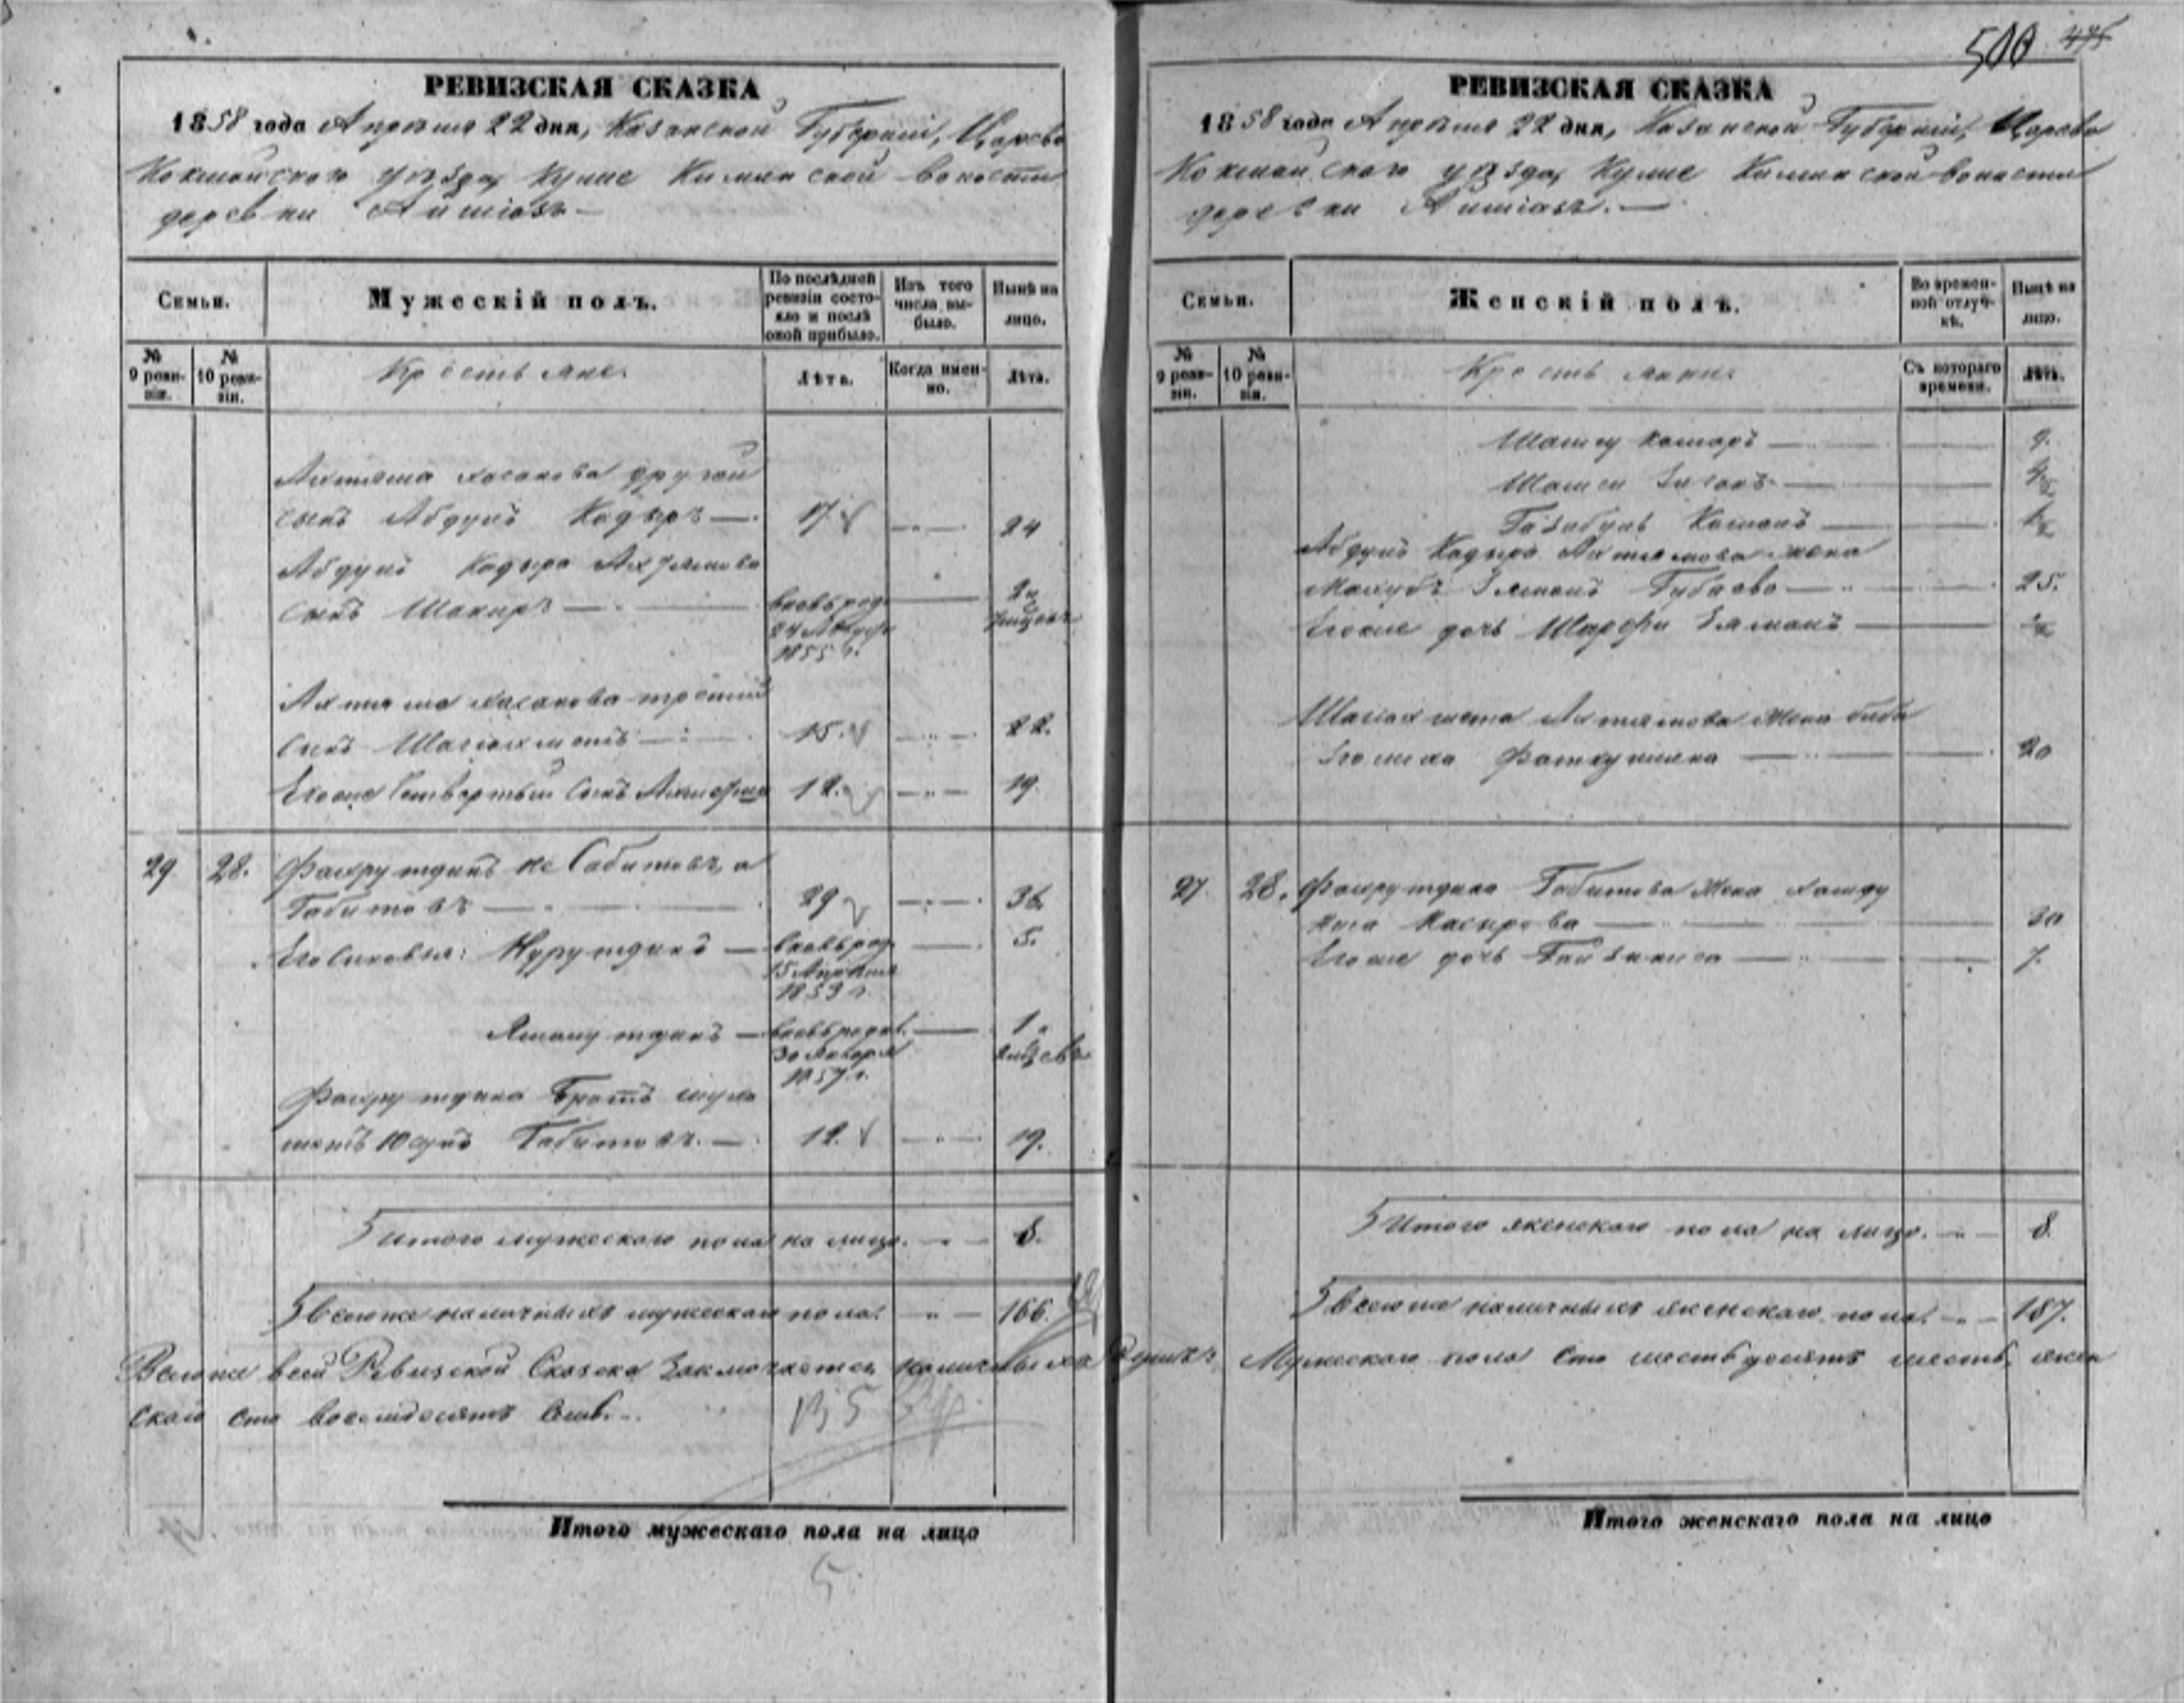 500 475
РЕВИЗСКАЯ СКАЗКА
1858 года Апрѣля 22 дня, Казанской Губерніи, Царево
Кокшайскаго уѣзда, Кулле Киминской волости
деревни
Семьи.
Мужескій полъ.
По послѣдней ревизіи состояло и послѣ оной прибыло.
Изъ того числа выбыло.
Нынѣ на лицо.
№ 9 ревизіи.
№ 10 ревизіи.
Крестьяне.
Лѣта.
Когда именно.
Лѣта.
Ахтяма Хасанова другой
сынъ Абдулъ Кадыръ — 17. — 24
Абдулъ Кадыра Ахтямова
сынъ Шакиръ — вновьрод. 24 1855 г. — 2
Ахтяма Хасанова третий
сынъ Шагіахметъ — 15. — 22.
Егоже Четвертый Сынъ — 12. — 19.
29 28. Фахрутдинъ не Сабитовъ, а
Габитовъ — 29 — 36.
Его Сыновья: Нурутдинъ — вновьрод. 15 Апрѣля 1853 г. — 5.
вновьрод. 30 Января 1857 г. — 1
Фахрутдина Братъ Муха
метъ Юсупъ Габитовъ. — 12. — 19.
Итого мужескаго пола на лицо. — 8.
Всегоже наличныхъ мужескаго пола. — 166.
Всегоже въ сей Ревизской Сказкѣ Заключается наличныхъ Душъ: Мужескаго пола сто шестьдесятъ шесть, жен
скаго сто восемдесятъ семь.
Итого мужескаго пола на лицо
5.
РЕВИЗСКАЯ СКАЗКА
1858 года Апрѣля 22 дня, Казанской Губерніи, Царево
Кокшайскаго уѣзда, Кулле Киминской волости
деревни
Семьи.
Женскій полъ.
Во временной отлучкѣ.
Нынѣ на лицо.
№ 9 ревизіи.
№ 10 ревизіи.
Крестьянки.
Съ котораго времени.
Лѣта.
Шамсу Камаръ — 9.
Камалъ
Абдулъ Кадыра Ахтямова жена
Зямалъ Губаева — 25.
Егоже дочь Шарфи Зямалъ
Шагіахмета Ахтямова Жена Биби
Фаткуллина — 20
27. 28. Фахрутдина Габитова Жена
Насырова — 30
Егоже дочь — 7.
Итого женскаго пола на лицо. — 8.
Всегоже наличныхъ женскаго пола. — 187.
Итого женскаго пола на лицо